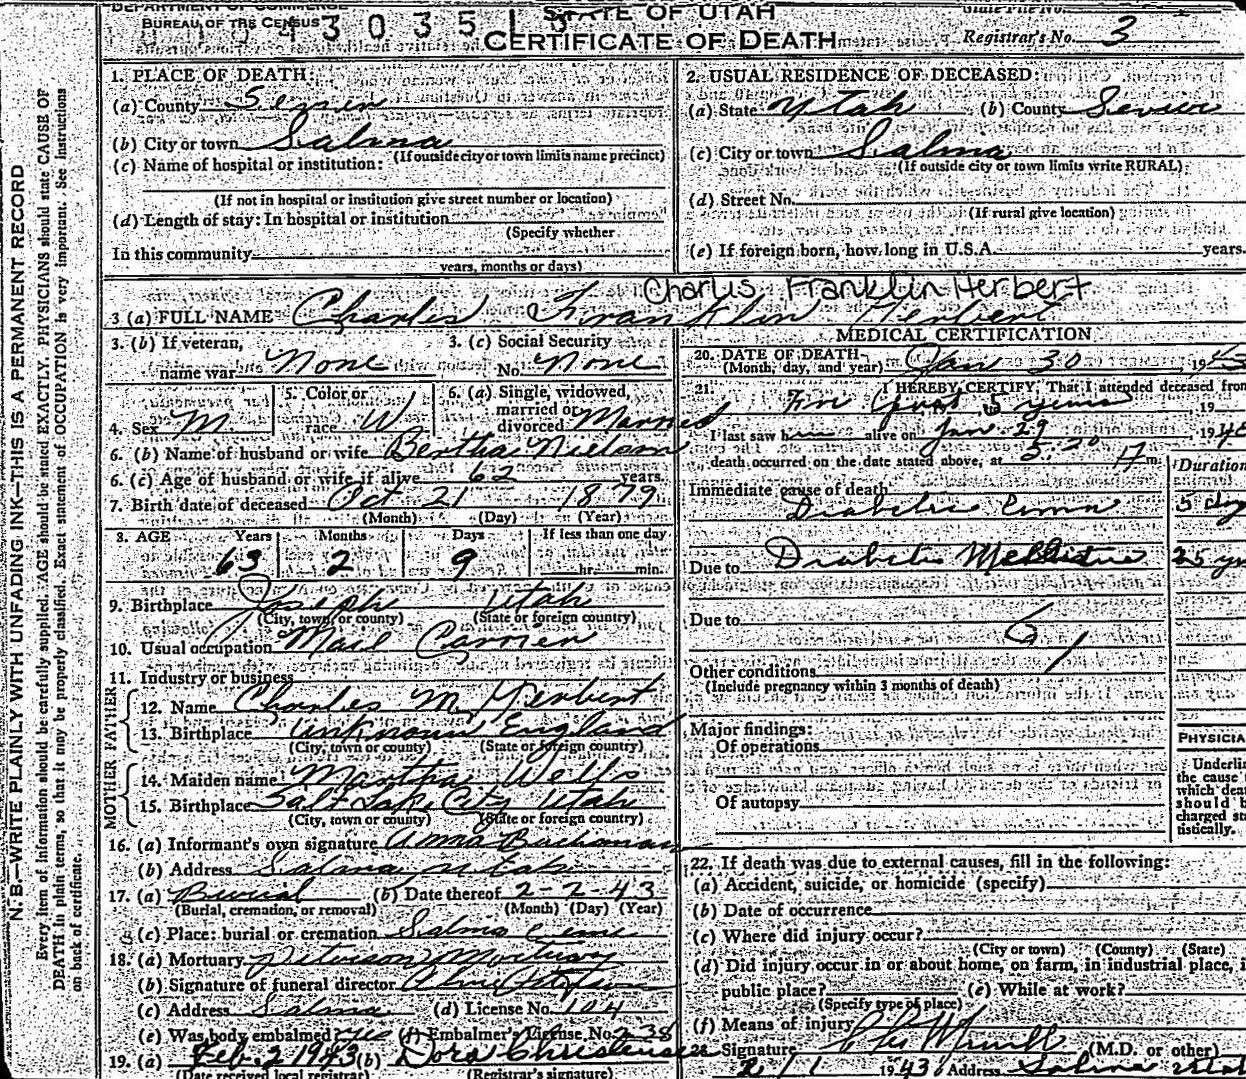 DEPARTMENT OF COMMERCE
BUREAU OF THE CENSUS
3 0 3 5 1 3
STATE OF UTAH
CERTIFICATE OF DEATH
State File No.
Registrar's No. 3
N. B.—WRITE PLAINLY WITH UNFADING INK—THIS IS A PERMANENT RECORD
Every item of information should be carefully supplied. AGE should be stated EXACTLY. PHYSICIANS should state CAUSE OF
DEATH in plain terms, so that it may be properly classified. Exact statement of OCCUPATION is very important. See instructions
on back of certificate.
1. PLACE OF DEATH:
(a) County Sevier
(b) City or town Salina
(If outside city or town limits name precinct)
(c) Name of hospital or institution:
(If not in hospital or institution give street number or location)
(d) Length of stay: In hospital or institution
(Specify whether
In this community
years, months or days)
2. USUAL RESIDENCE OF DECEASED:
(a) State Utah (b) County Sevier
(c) City or town Salina
(If outside city or town limits write RURAL)
(d) Street No.
(If rural give location)
(e) If foreign born, how long in U.S.A. years.
Charlis Franklin Herbert
3 (a) FULL NAME Charles Franklin Herbert
3. (b) If veteran, 3. (c) Social Security
name war None No. None
4. Sex M 5. Color or race W 6. (a) Single, widowed, married or divorced Married
6. (b) Name of husband or wife Bertha Nielson
6. (c) Age of husband or wife if alive 62 years.
7. Birth date of deceased Oct 21 1879
(Month) (Day) (Year)
8. AGE Years Months Days If less than one day
63 2 9 hr. min.
9. Birthplace Joseph Utah
(City, town or county) (State or foreign country)
10. Usual occupation Mail Carrier
11. Industry or business
FATHER
12. Name Charles M. Herbert
13. Birthplace Unknown England
(City, town or county) (State or foreign country)
MOTHER
14. Maiden name Martha Wells
15. Birthplace Salt Lake City Utah
(City, town or county) (State or foreign country)
16. (a) Informant's own signature Anna Buchanan
(b) Address Salina, Utah
17. (a) Burial (b) Date thereof 2-2-43
(Burial, cremation, or removal) (Month) (Day) (Year)
(c) Place: burial or cremation Salina Cem
18. (a) Mortuary Peterson Mortuary
(b) Signature of funeral director
(c) Address Salina (d) License No. 104
(e) Was body embalmed yes (f) Embalmer's License No. 238
19. (a) Feb. 2 1943 (b) Dora Christensen
(Date received local registrar) (Registrar's signature)
MEDICAL CERTIFICATION
20. DATE OF DEATH— Jan 30, 1943
(Month, day, and year)
21. I HEREBY CERTIFY, That I attended deceased from
For past 5 years, 19
I last saw h alive on Jan 29, 19
death occurred on the date stated above, at 5:20 m.
Duration
Immediate cause of death
Diabetic Coma 5 dys
Due to Diabetis Mellitus 25 yrs
Due to
61
Other conditions
(Include pregnancy within 3 months of death)
Major findings:
Of operations
Of autopsy
PHYSICIA
Underlin
the cause
which dea
should b
charged sta
tistically.
22. If death was due to external causes, fill in the following:
(a) Accident, suicide, or homicide (specify)
(b) Date of occurrence
(c) Where did injury occur?
(City or town) (County) (State)
(d) Did injury occur in or about home, on farm, in industrial place, i
public place? (e) While at work?
(Specify type of place)
(f) Means of injury
Signature (M.D. or other)
2/1 1943 Address Salina Utah